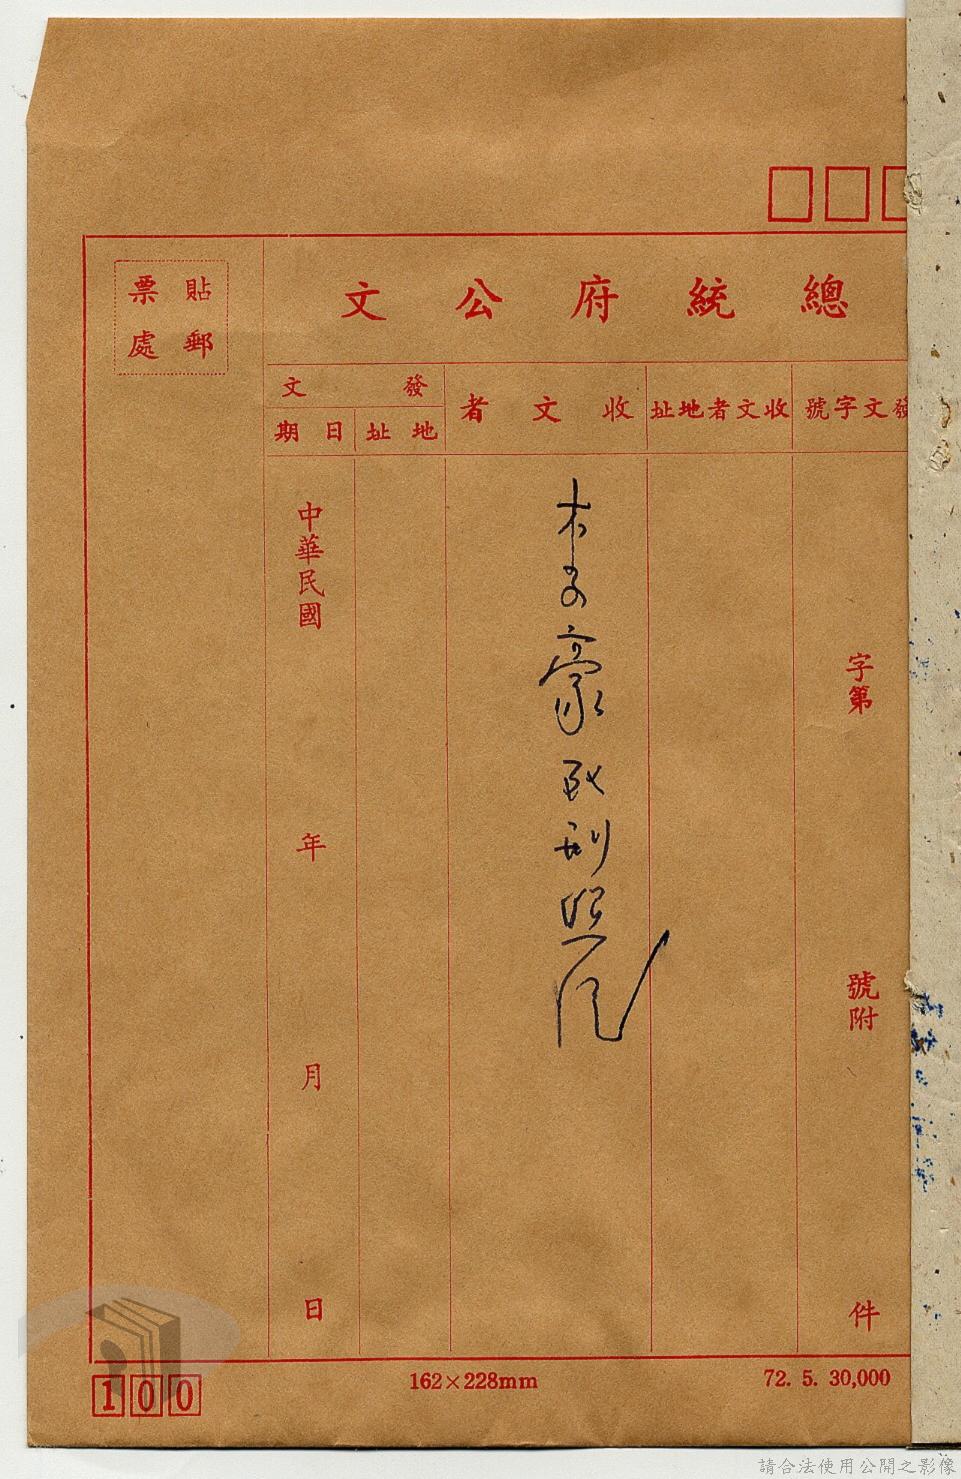 總統府公文
貼郵
票處
發文字號
收文者地址
收文者
發文
地址
日期
字第 號附 件
李豪 刑照片
中華民國 年 月 日
100
162×228mm
72. 5. 30,000
請合法使用公開之影像